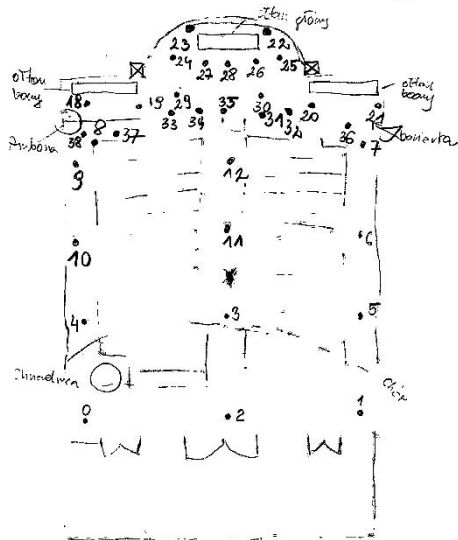 ołtarz główny
23
22
24
27
28
26
25
ołtarz
boczny
ołtarz
boczny
18
19
29
35
30
20
21
33
34
31
32
36
Ambona
38
8
37
7
9
12
10
11
6
4
3
5
Chrzcielnica
Chór
0
2
1